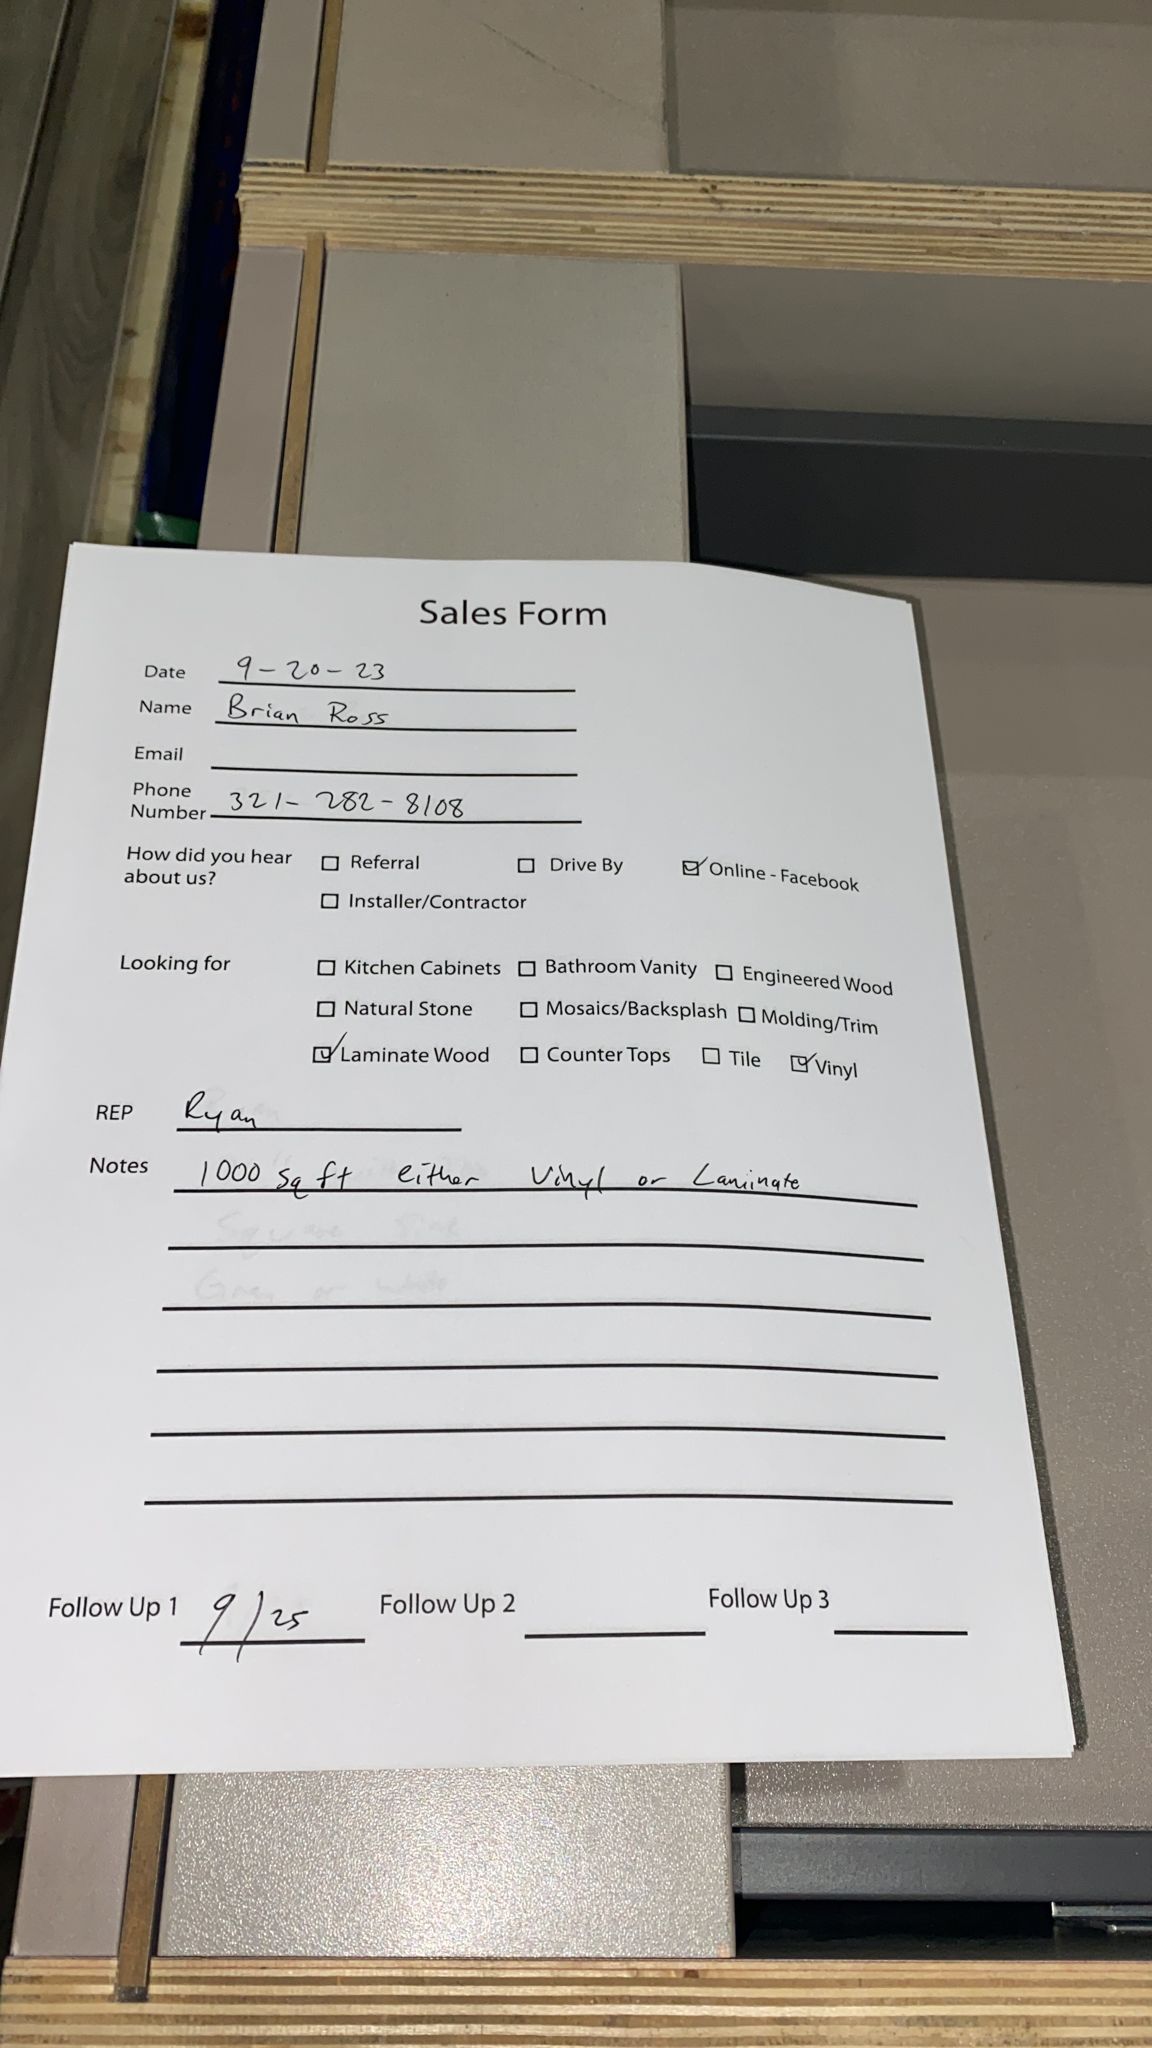 Sales Form
Date 9-20-23
Name Brian Ross
Email
Phone Number 321-282-8108
How did you hear about us? ☐ Referral ☐ Drive By ☑ Online - Facebook
☐ Installer/Contractor
Looking for ☐ Kitchen Cabinets ☐ Bathroom Vanity ☐ Engineered Wood
☐ Natural Stone ☐ Mosaics/Backsplash ☐ Molding/Trim
☑ Laminate Wood ☐ Counter Tops ☐ Tile ☑ Vinyl
REP Ryan
Notes 1000 sq ft either Vinyl or Laminate
Follow Up 1 9/25 Follow Up 2 Follow Up 3